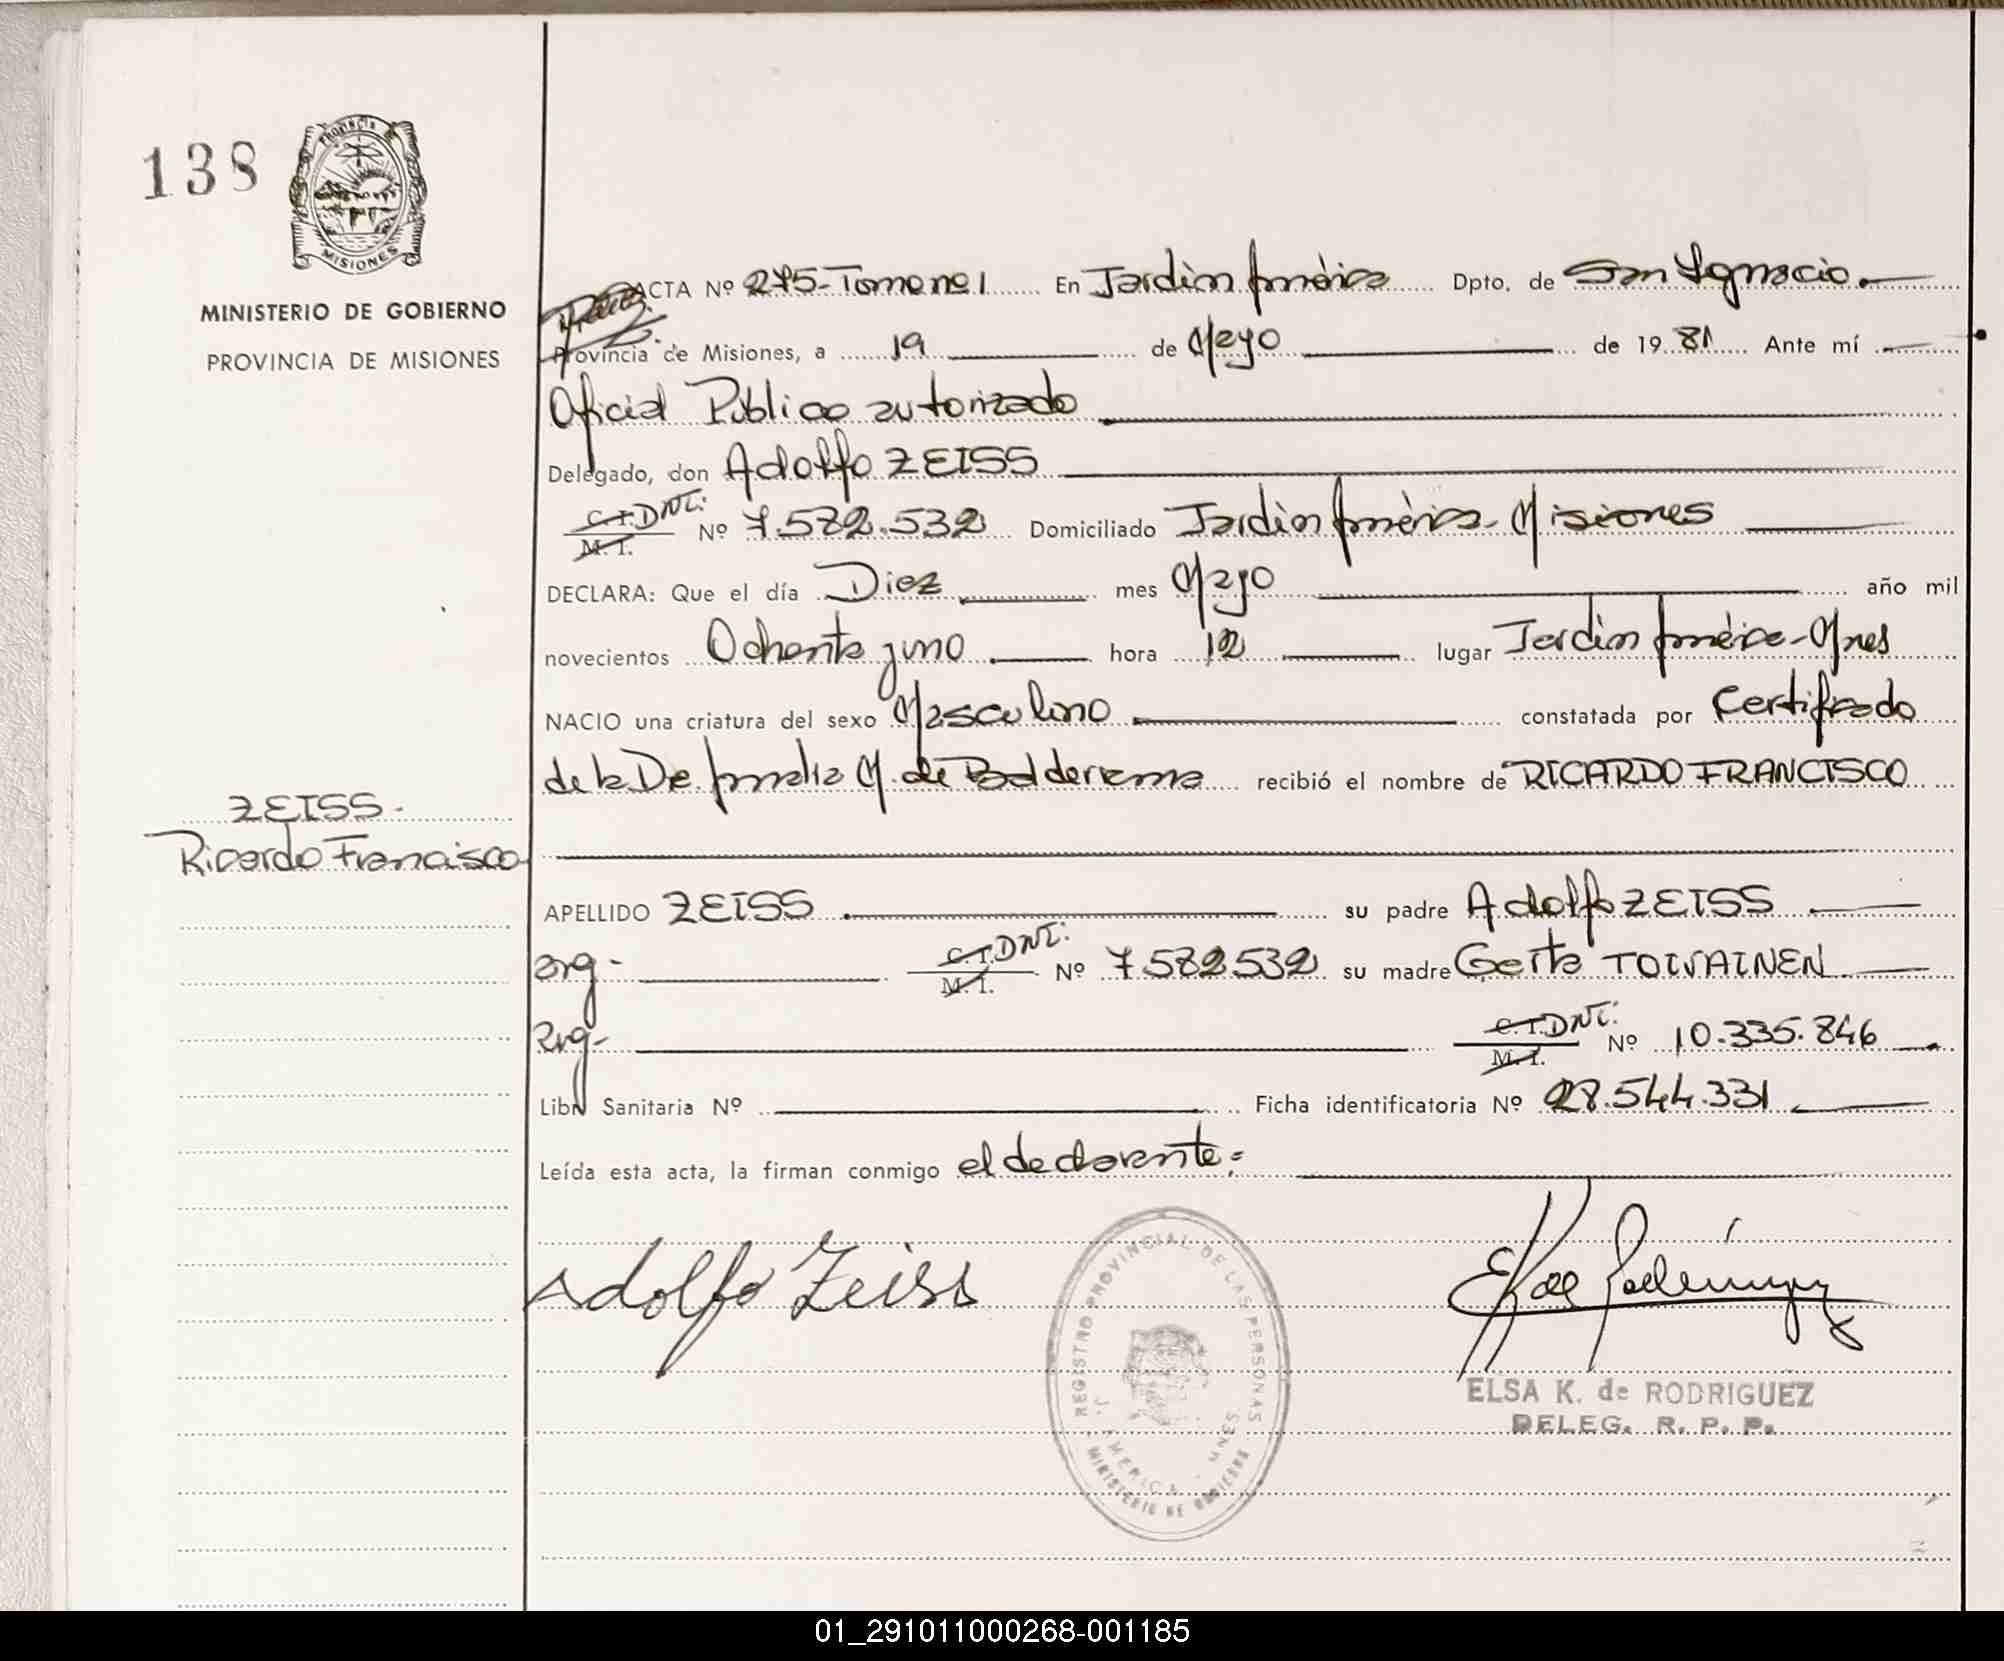 138
PROVINCIA
MISIONES
MINISTERIO DE GOBIERNO
PROVINCIA DE MISIONES
ACTA Nº 275-Tomo nº1 En Jardín América Dpto. de San Ignacio.
Provincia de Misiones, a 19 de Mayo de 1981 Ante mí
Oficial Público autorizado
Delegado, don Adolfo ZEISS
C.I. DNI:
M. I. Nº 7.582.532 Domiciliado Jardín América-Misiones
DECLARA: Que el día Diez mes Mayo año mil
novecientos Ochenta y uno hora 12 lugar Jardín América-Mnes
NACIO una criatura del sexo Masculino constatada por Certificado
de la Dra. Amalia M. de Balderrama recibió el nombre de RICARDO FRANCISCO
ZEISS.
Ricardo Francisco
APELLIDO ZEISS su padre Adolfo ZEISS
arg- C.I. DNI: M. I. Nº 7.582532 su madre Gerta TOIVAINEN
arg- C.I. DNI: M. I. Nº 10.335.846
Libr Sanitaria Nº Ficha identificatoria Nº 28.544.331
Leída esta acta, la firman conmigo el declarante.=
Adolfo Zeiss
REGISTRO PROVINCIAL DE LAS PERSONAS
J. AMERICA - MNES
MINISTERIO DE GOBIERNO
ELSA K. de RODRIGUEZ
DELEG. R. P. P.
01_291011000268-001185